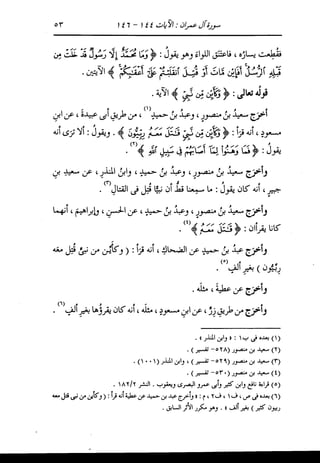 سورة آل عمران : الآيات ١٤٤ - ١٤٦ ٥٣
فقطعت يساره ، فاعتنق اللواء وهو يقول : ﴿ وَمَا مُحَمَّدٌ إِلَّا رَسُولٌ قَدْ خَلَتْ مِن
قَبْلِهِ الرُّسُلُ أَفَإِيْن مَّاتَ أَوْ قُتِلَ انقَلَبْتُمْ عَلَىٰ أَعْقَابِكُمْ ﴾ الآيتين .
قوله تعالى : ﴿ وَكَأَيِّن مِّن نَّبِيٍّ ﴾ الآية .
أخرج سعيد بن منصور ، وعبد بن حميد (١) ، من طريق أبى عبيدة ، عن ابن
مسعود ، أنه قرأ : ﴿ وَكَأَيِّن مِّن نَّبِيٍّ قَاتَلَ مَعَهُ رِبِّيُّونَ ﴾ . ويقول : ألا ترى أنه
يقول : ﴿ فَمَا وَهَنُوا لِمَا أَصَابَهُمْ فِي سَبِيلِ اللَّهِ ﴾ (٢) .
وأخرج سعيد بن منصور ، وعبد بن حميد ، وابن المنذر ، عن سعيد بن
جبير ، أنه كان يقول : ما سمعنا قط أن نبيًّا قُتِل فى القتال (٣) .
وأخرج سعيد بن منصور ، وعبد بن حميد ، عن الحسن ، وإبراهيم ، أنهما
كانا يقرآن : ﴿ قَاتَلَ مَعَهُ ﴾ (٤) .
وأخرج عبد بن حميد عن الضحاك ، أنه قرأ : ( وكأين من نبى قُتل معه
ربيون ) بغير ألف (٥) .
وأخرج عن عطية ، مثله .
وأخرج من طريق زر ، عن ابن مسعود ، مثله ، أنه كان يقرؤها بغير ألف (٦) .
(١) بعده فى ب١ : « وابن المنذر » .
(٢) سعيد بن منصور (٥٢٨ - تفسير) .
(٣) سعيد بن منصور (٥٢٩ - تفسير) ، وابن المنذر (١٠٠١) .
(٤) سعيد بن منصور (٥٣٠ - تفسير) .
(٥) قراءة نافع وابن كثير وأبى عمرو البصرى ويعقوب . النشر ١٨٢/٢ .
(٦) بعده فى ص ، ف١ ، ف٢ ، م : « وأخرج عبد بن حميد عن عطية أنه قرأ : ( وكأين من نبى قتل معه
ربيون كثير ) بغير ألف » . وهو مكرر الأثر السابق .